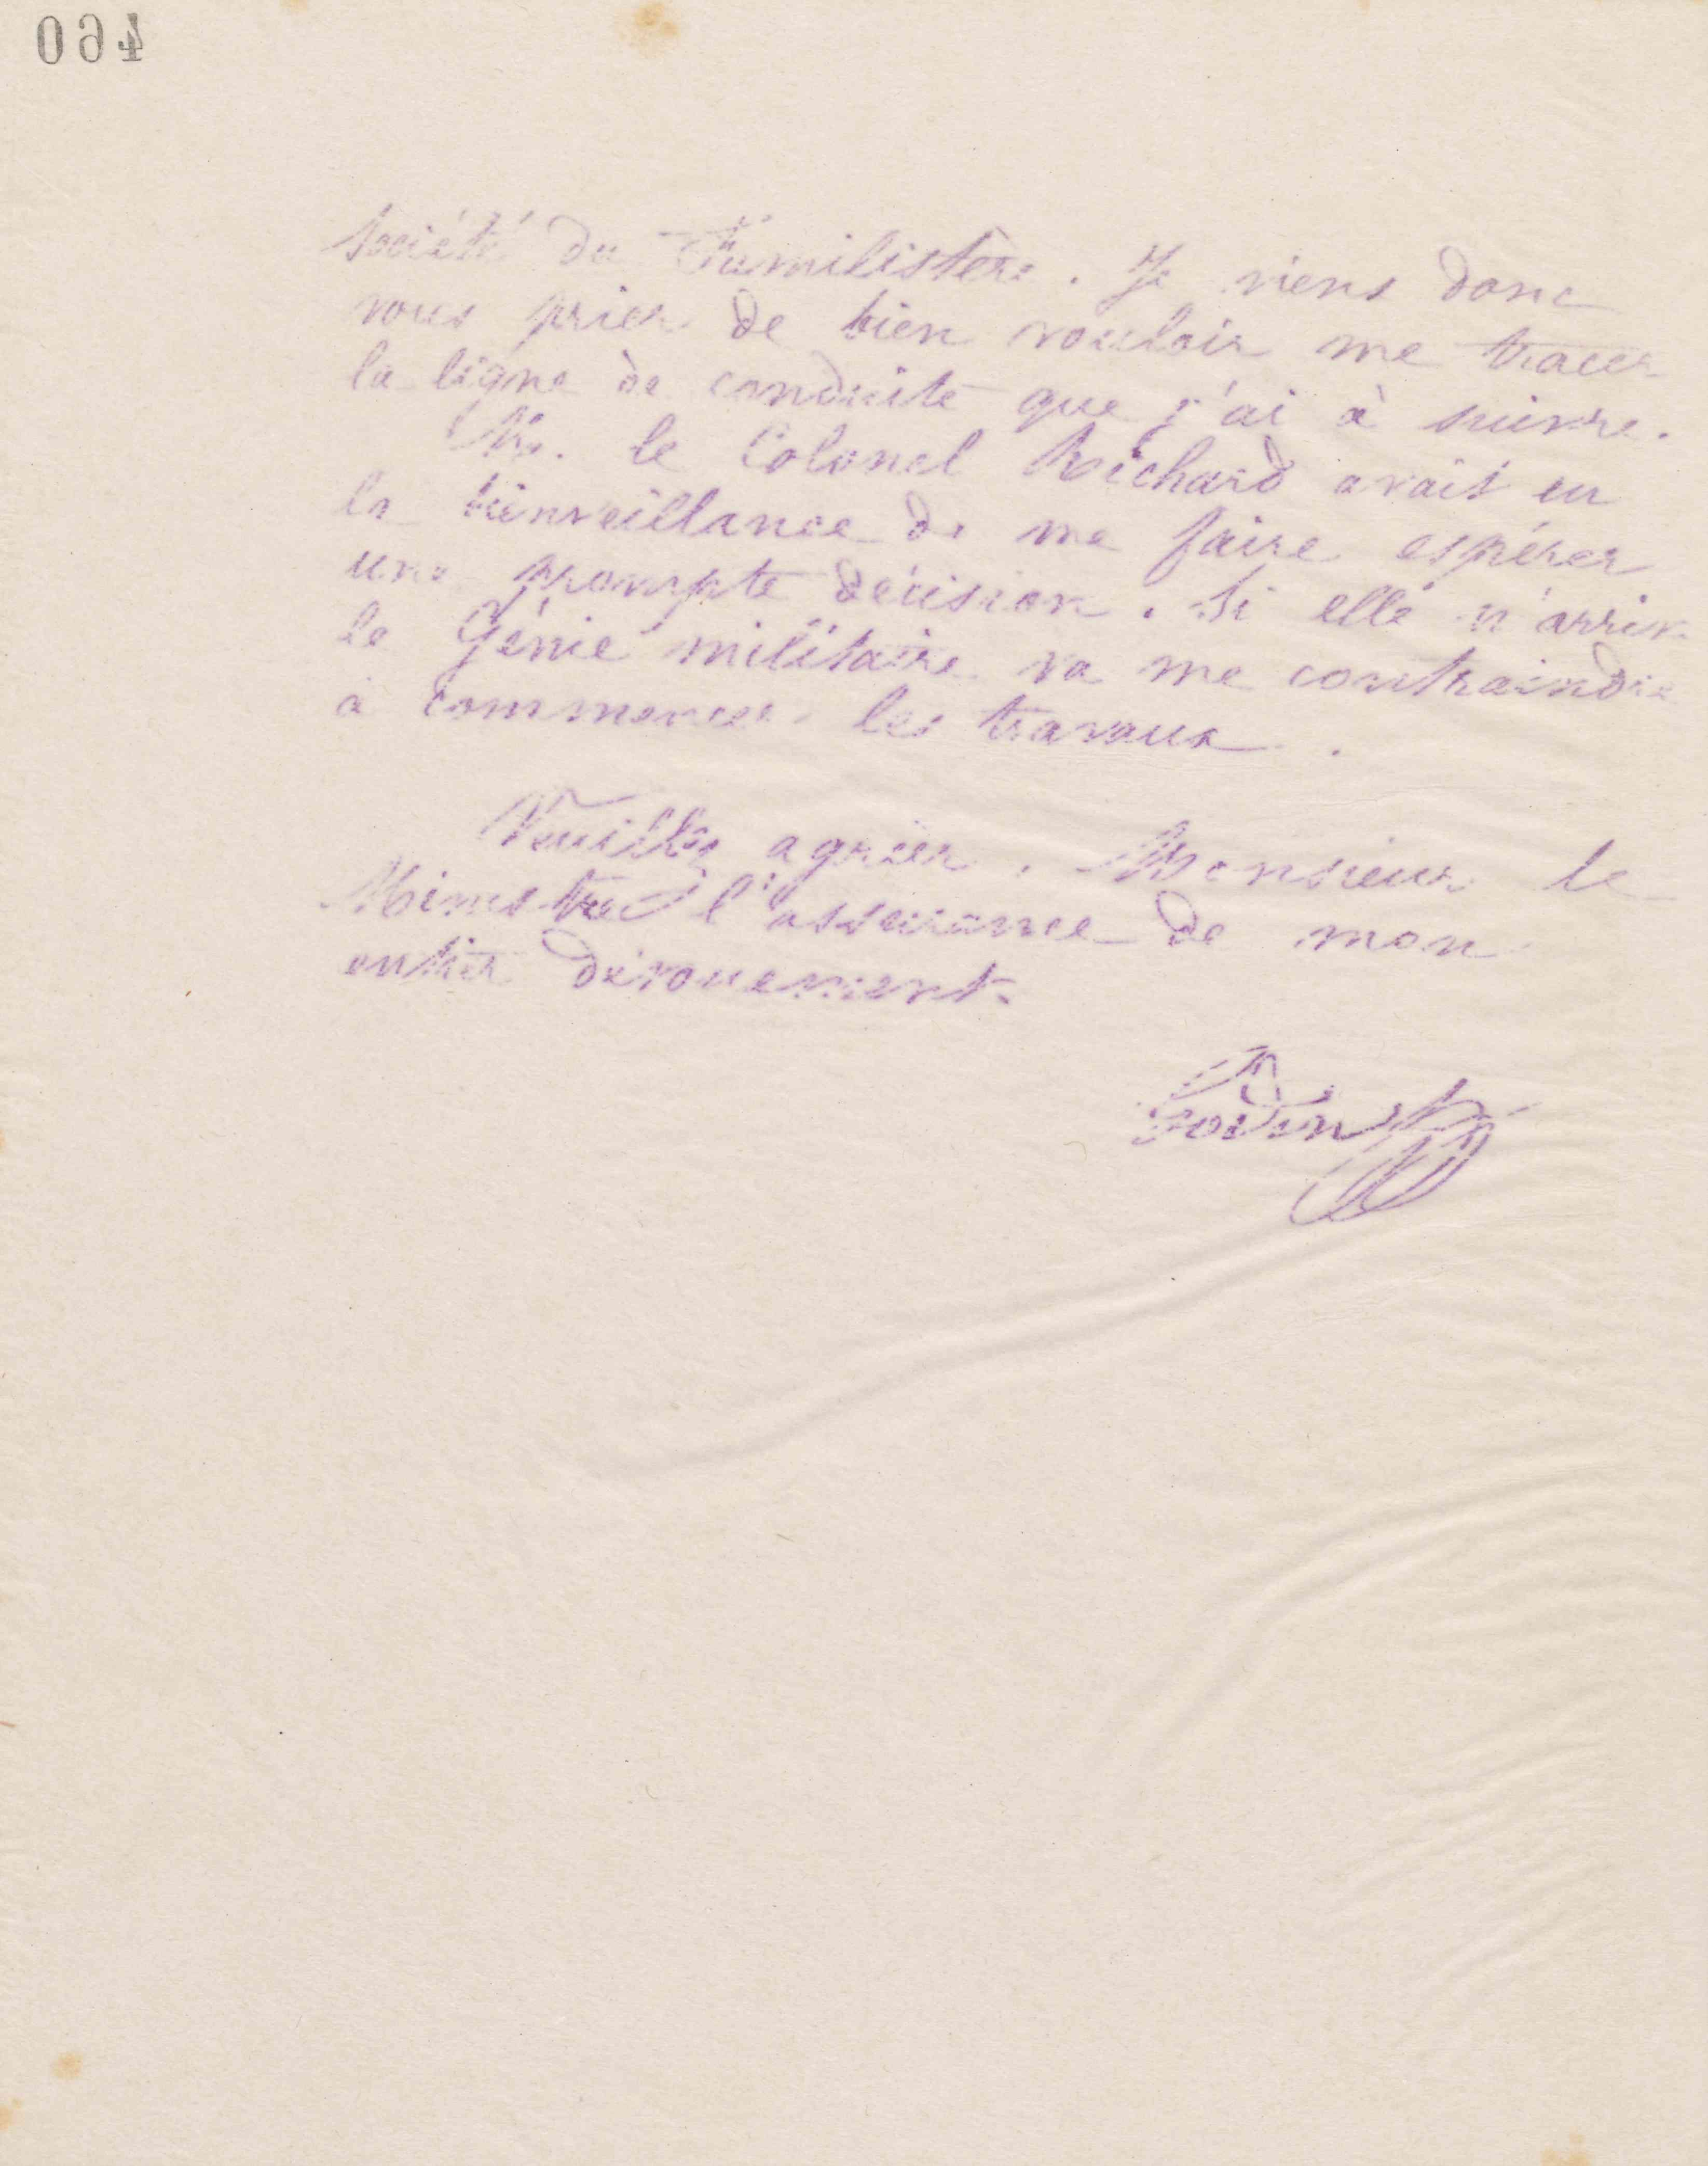 460
Société du Familistère. Je viens donc
vous prier de bien vouloir me tracer
la ligne de conduite que j'ai à suivre.
Mr. le Colonel Richard avait eu
la bienveillance de me faire espérer
une prompte décision. Si elle n'arrive
le Génie militaire va me contraindre
à commencer les travaux.
Veuillez agréer, Monsieur le
Ministre l'assurance de mon
entier dévouement.
Godin